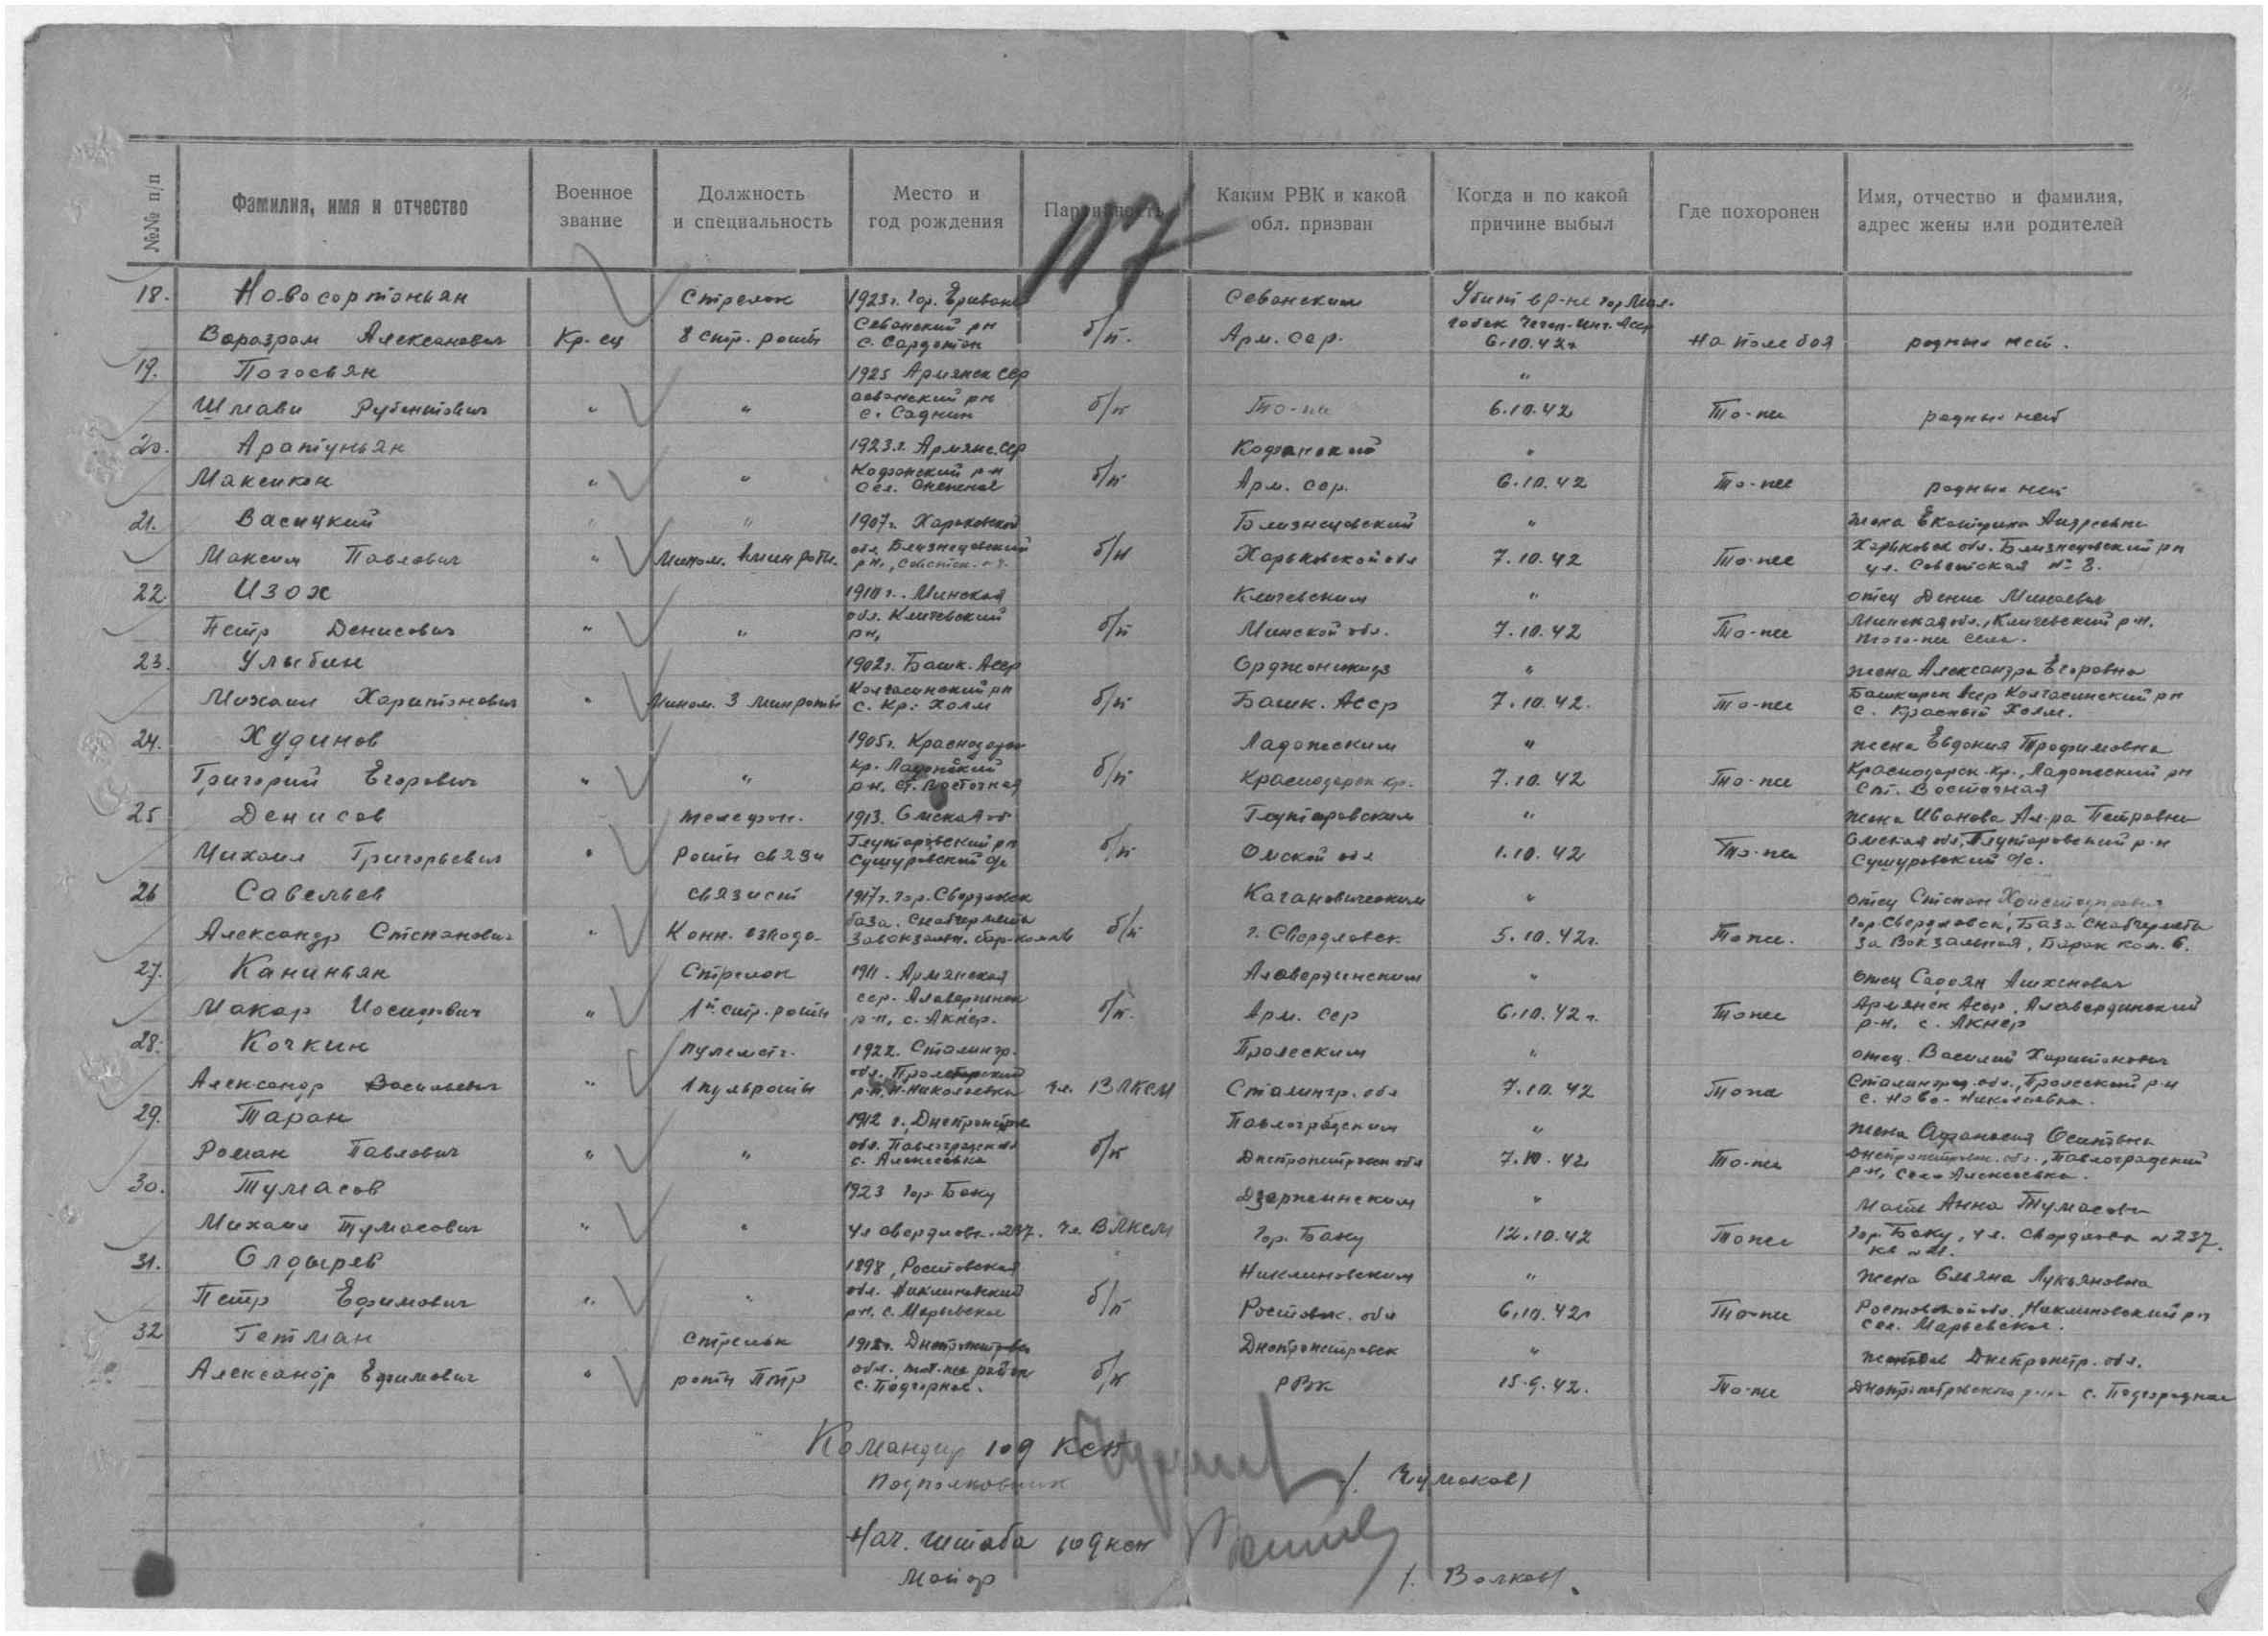 117
№№ п/п
Фамилия, имя и отчество
Военное звание
Должность и специальность
Место и год рождения
Партийность
Каким РВК и какой обл. призван
Когда и по какой причине выбыл
Где похоронен
Имя, отчество и фамилия, адрес жены или родителей
18. Новосортоньян Стрелок 1923 г. Гор. Ериван Севанским Убит в р-не гор. Мал-
Севанский рн гобек Чечен-Инг. Асср
Александрович Кр-ец 8 стр. роты с. б/п. Арм. сср. 6.10.42г На поле боя родных нет.
19. Погосьян 1925 Армянск ССр "
Рубентович " " севанский рн с. б/п То-же 6.10.42 То-же родных нет
20. Аратуньян 1923 г. Армянс. ср Кафанский "
Максикон " " Кафанский р-н сел. б/п Арм. сср. 6.10.42 То-же родных нет
21. Васицкий " " 1907 г. Харьковской Близнецовский " жена Екатерина Андреевна
Максим Павлович " Мином. 1 мин роты. обл. Близнецовский рн., б/п Харьковской обл 7.10.42 То-же Харьковск обл. Близнецовский рн
ул. Советская № 8.
22. Изох 1910 г. Минская Кличевским " отец Денис
Петр Денисович " " обл. Кличевский рн, б/п Минской обл. 7.10.42 То-же Минская обл., Кличевский р-н.
того-же села.
23. Улыбин 1902 г. Башк. Асср Орджоникидз " жена Александра Егоровна
Михаил Харитонович " Мином. 3 минроты Калтасинский рн с. Кр. Холм б/п Башк. Асср 7.10.42. То-же Башкирск Асср Калтасинский рн
с. Красный Холм.
24. Худинов 1905 г. Краснодарск Ладожским " жена Евдокия Трофимовна
Григорий Егорович " " кр. Ладожский рн. ст. Восточная б/п Краснодарск кр. 7.10.42 То-же Краснодарск. кр., Ладожский рн
Ст. Восточная
25 Денисов телефон. 1913. Омская об " жена Иванова Ал-ра Петровна
Михаил Григорьевич " Роты связи б/п Омской обл 1.10.42 То-же Омская обл,
26 Савельев связист 1917 г. гор. Свердловск Кагановическим " отец Степан
Александр Степанович " Конн. взвода база. б/п г. Свердловск. 5.10.42г. То же. Гор Свердловск, База
За Вокзальная, Барак ком. 6.
27. Каниньян Стрелок 1911. Армянская Алавердинским " отец
Макар Иосипович " 1й стр. роты сср. р-н, с. Акнер. б/п. Арм. сср 6.10.42 г. То же Армянск Асср, Алавердинский
р-н. с. Акнер
28. Кочкин Пулеметч. 1922. Сталингр. Пролеским " отец. Василий Харитонович
Александр Васильевич " 1 пульроты обл. р-н, Н-Николаевка чл. ВЛКСМ Сталингр. обл 7.10.42 То же Сталинград. обл., Пролеский р-н
с. Ново-Николаевка.
29. Таран 1912 г., Днепропетр Павлоградским " жена Афанасия Осиповна
Роман Павлович " " обл. Павлоградский с. Алексеевка б/п Днепропетровск обл 7.10.42 То-же Днепропетровск. обл., Павлоградский
р-н, село Алексеевка.
30. Тумасов 1923 Гор. Баку Дзержинским " Мать Анна Тумасова
Михаил Тумасович " " ул свердлова. 237. чл. ВЛКСМ Гор. Баку 12.10.42 То же Гор. Баку, ул. Свердлова № 237.
кв № 21.
31. Олдырев 1898, Ростовская Никлиновским " жена Ульяна Лукьяновна
Петр Ефимович " " обл. Никлиновский рн. с. Марьевское б/п Ростовск. обл 6.10.42г То-же Ростовской обл. Никлиновский рн
сел. Марьевское.
32 Гетман стрелок 1918 г. Днепропетровск Днепропетровск " Днепропетр. обл.
Александр Ефимович " роты Птр обл. тот-же район с. Подгорное. б/п РВК 15.9.42. То-же Днепропетровского р-на с. Подгородная
Командир 109 ксп
Подполковник /. Чумаков/
Нач. штаба 109 ксп
Майор /. Волков/.